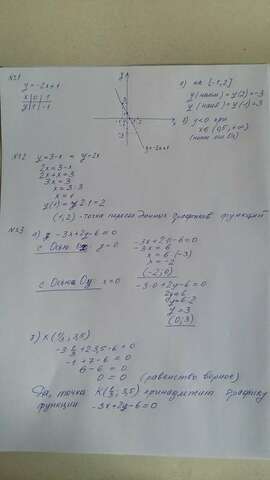 №1
y = -2x+1
x | 0 | 1
y | 1 | -1
y=-2x+1
а) на [-1,2]
y(наим) = y(2) = -3
y(наиб) = y(-1) = 3
б) y<0 при
x∈(0,5;+∞)
(ниже оси Ox)
№2 y=3-x y=2x
2x=3-x
2x+x=3
3x=3
x=3:3
x=1
y(1)=2·1=2
(1;2) - точка данных графиков функций
№3 а) -3x+2y-6=0
с Осью Ox y=0
-3x+2·0-6=0
-3x=6
x=6:(-3)
x=-2
(-2;0)
с Осью Oy: x=0
-3·0+2y-6=0
2y=6
y=6:2
y=3
(0;3)
б) K(1/3; 3,5)
-3·1/3+2·3,5-6=0
-1+7-6=0
6-6=0
0=0 (равенство верное)
Да, точка K(1/3; 3,5) принадлежит графику
функции -3x+2y-6=0